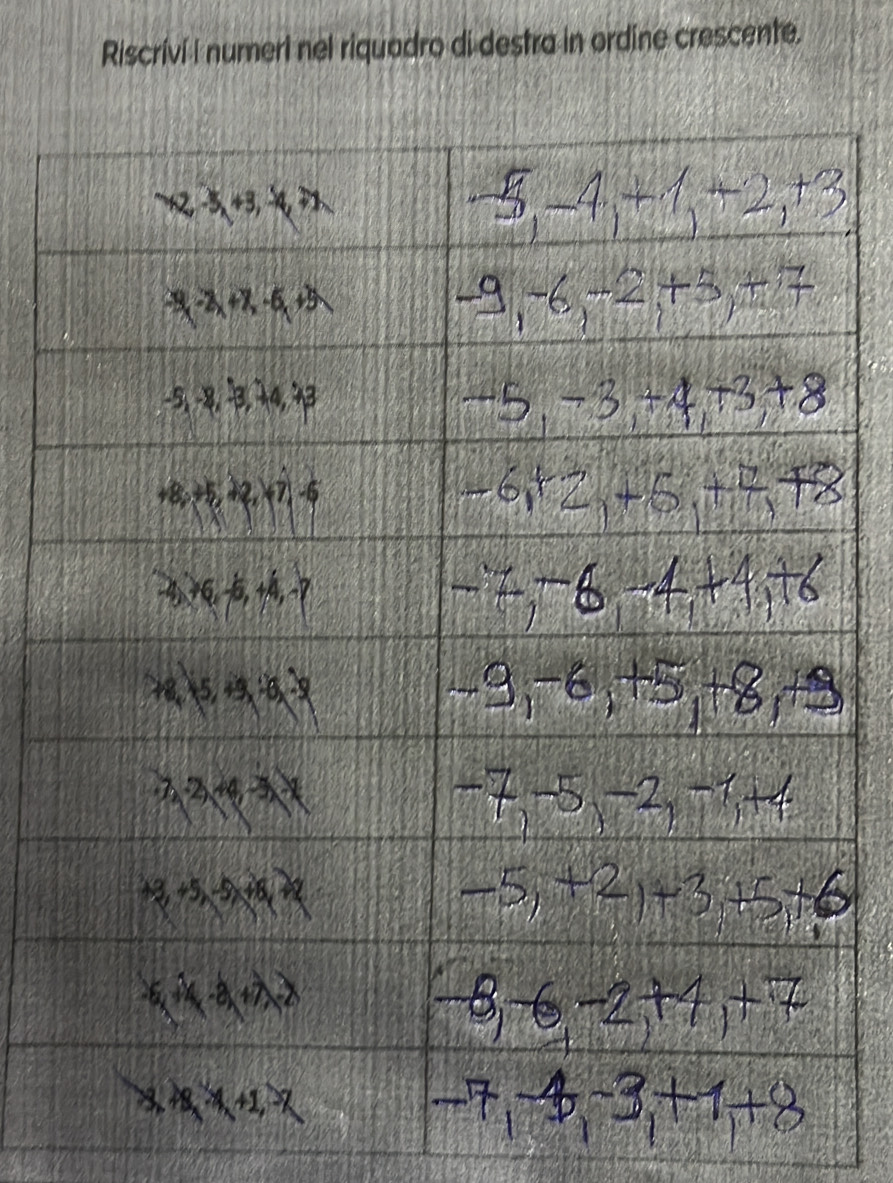 Riscrivi i numeri nel riquadro di destra in ordine crescente.
+2, -5, +3, -4, +1 -5, -4, +1, +2, +3
-9, -2, +7, -6, +5 -9, -6, -2, +5, +7
-5, -8, -3, +4, +3 -5, -3, +4, +3, +8
+8, +5, +2, +7, -6 -6, +2, +5, +7, +8
-4, +6, -6, +4, -7 -7, -6, -4, +4, +6
+8, +5, +9, -6, -9 -9, -6, +5, +8, +9
-7, -2, +4, -5, -1 -7, -5, -2, -1, +4
+3, +5, -5, +6, +2 -5, +2, +3, +5, +6
-6, +4, -8, +7, -2 -8, -6, -2, +4, +7
-3, +8, -4, +1, -7 -7, -4, -3, +1, +8